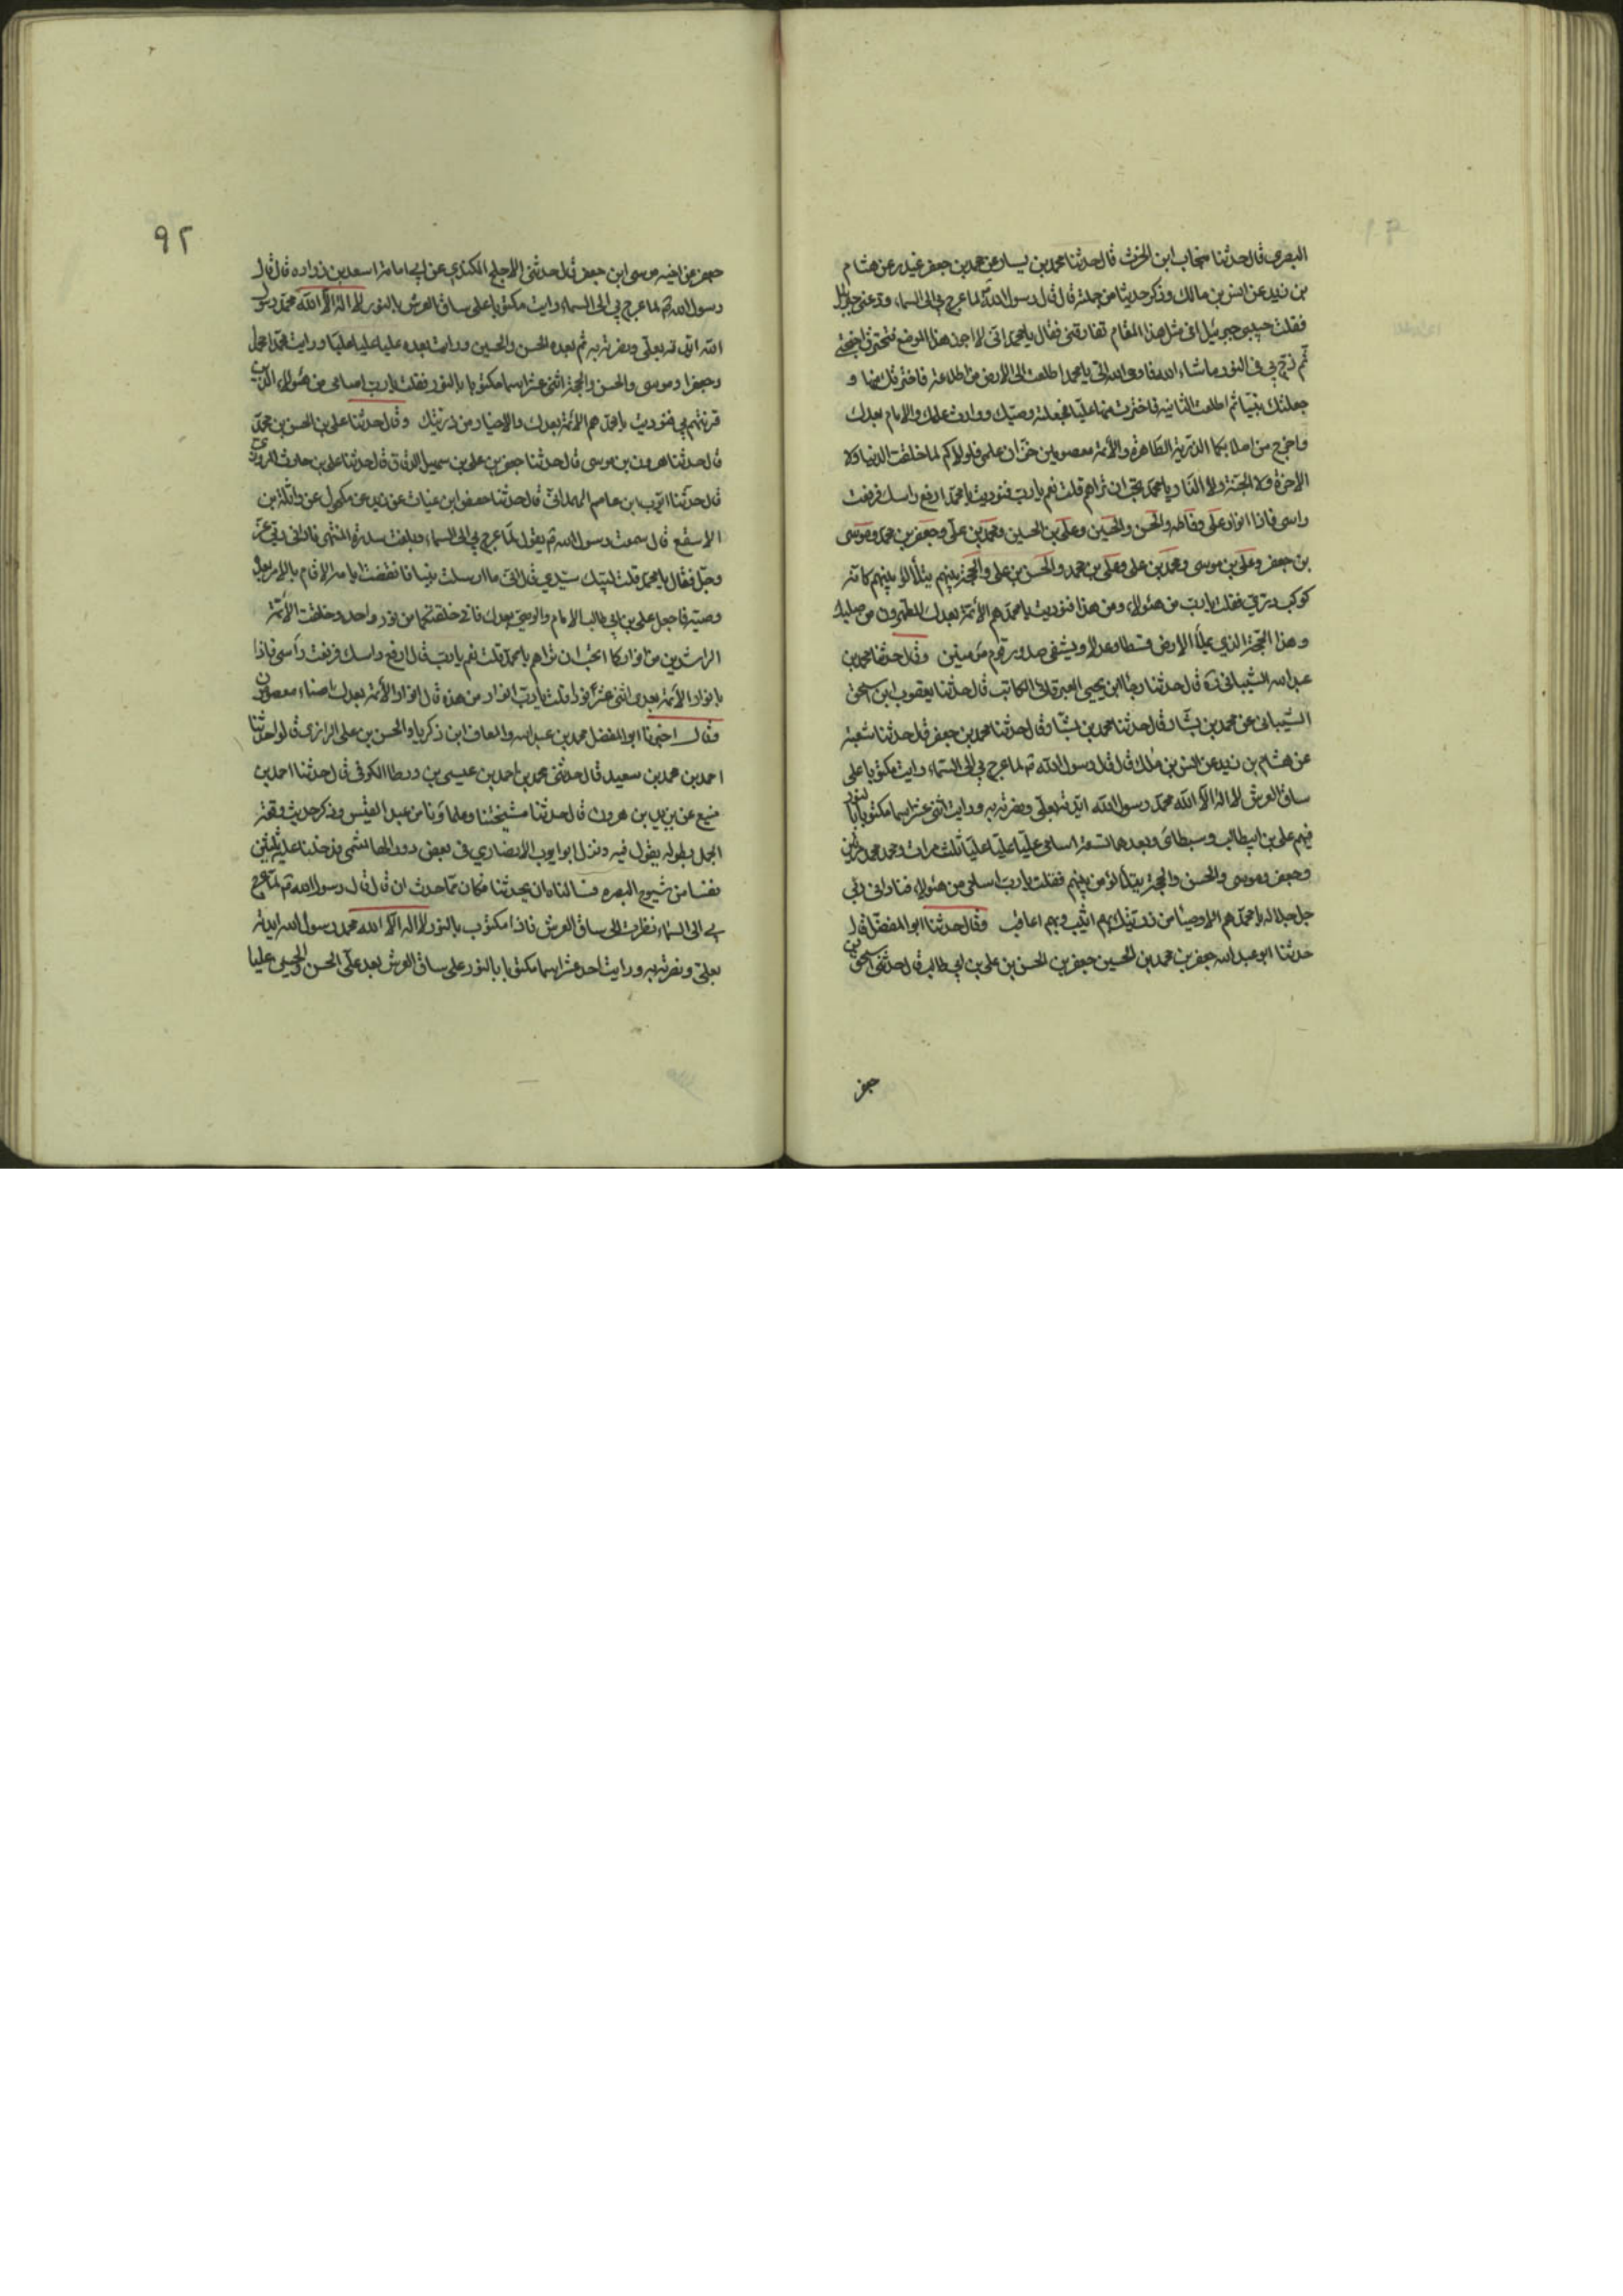 البصري قال حدثنا سحاب ابن الحرث قال حدثنا محمد بن يسار عن محمد بن جعفر غندر عن هشام
بن زيد عن انس بن مالك وذكر حديثا من جملته قال قال رسول الله لما عرج بي الى السماء وودعني جبرئيل
فقلت حبيبي جبرئيل افي مثل هذا المقام تفارقني فقال يا محمد اني لا اجوز هذا الموضع فتحترق اجنحتي
ثم زج بي في النور ما شاء الله فاوحى الله الي يا محمد اطلعت الى الارض اطلاعة فاخترتك منها و
جعلتك نبيا ثم اطلعت الثانية فاخترت منها عليا فجعلته وصيك ووارث علمك والامام بعدك
واخرج من اصلابكما الذرية الطاهرة والأئمة معصومين خزان علمي فلولاكم لما خلقت الدنيا ولا
الاخرة ولا الجنة ولا النار يا محمد تحب ان تراهم قلت نعم يا رب فنوديت يا محمد ارفع راسك فرفعت
راسي فاذا انوار علي وفاطمه والحسن والحسين وعلي بن الحسين ومحمد بن علي وجعفر بن محمد وموسى
بن جعفر وعلي بن موسى ومحمد بن علي وعلي بن محمد والحسن بن علي والحجة بينهم يتلألأ بينهم كانه
كوكب دري فقلت يا رب من هئولاء ومن هذا فنوديت يا محمد هم الأئمة بعدك المطهرون من صلبك
وهذا الحجة الذي يملأ الارض قسطا وعدلا ويشفي صدور قوم مؤمنين وقال حدثنا محمد بن
عبد الله الشيباني ره قال حدثنا رجا ابن يحيى العبرتائي الكاتب قال حدثنا يعقوب ابن اسحق
الشيباني عن محمد بن بشار قال حدثنا محمد بن بشار قال حدثنا محمد بن جعفر قال حدثنا شعبة
عن هشام بن زيد عن انس بن ملك قال قال رسول الله ص لما عرج بي الى السماء رايت مكتوبا على
ساق العرش لا اله الا الله محمد رسول الله ايدته بعلي ونصرته به ورايت اثني عشر اسما مكتوبا بالنور
فيهم علي بن ابيطالب وسبطاي وبعدهما تسعة اسامي عليا عليا عليا ثلث مرات ومحمد محمد مرتين
وجعفر وموسى والحسن والحجة يتلألأ من بينهم فقلت يا رب اسامي من هئولاء فناداني ربي
جل جلاله يا محمد هم الاوصيا من ذريتك بهم اثيب وبهم اعاقب وقال حدثنا ابو المفضل قال
حدثنا ابو عبد الله جعفر بن محمد بن الحسين جعفر بن الحسن بن علي بن ابي طالب قال حدثني اسحق بن
جعفر
٩٢
جعفر عن اخيه موسى ابن جعفر قال حدثني الاجلح الكندي عن ابي امامة اسعد بن زراره قال قال
رسول الله ص لما عرج بي الى السماء رايت مكتوبا على ساق العرش بالنور لا اله الا الله محمد رسول
الله ايدته بعلي ونصرته به ثم بعده الحسن والحسين ورايت بعده عليا عليا عليا ورايت محمدا محمدا
وجعفرا وموسى والحسن والحجة اثني عشر اسما مكتوبا بالنور فقلت يا رب اسامي من هئولاء الذين
قرنتهم بي فنوديت يا محمد هم الأئمة بعدك والاخيار من ذريتك وقال حدثنا علي بن الحسن بن محمد
قال حدثنا هرون بن موسى قال حدثنا جعفر بن علي بن سهيل الدقاق قال حدثنا علي بن حارث المروزي
قال حدثنا ايوب ابن عاصم الهمداني قال حدثنا حفص ابن غياث عن يزيد عن مكحول عن واثلة بن
الاسقع قال سمعت رسول الله ص يقول لما عرج بي الى السماء وبلغت سدرة المنتهى ناداني ربي عز
وجل فقال يا محمد قلت لبيك سيدي قال اني ما ارسلت نبيا فانقضت ايامه الا قام بالامر بعده
وصيه فاجعل علي بن ابي طالب الامام والوصي بعدك فاني خلقتكما من نور واحد وخلقت الأئمة
الراشدين من انواركما اتحب ان تراهم يا محمد قلت نعم يا رب قال ارفع راسك فرفعت رأسي فاذا
بانوار الأئمة بعدي اثني عشر نورا قلت يا رب انوار من هذه قال انوار الأئمة بعدك امناء معصومون
وقال اخبرنا ابو المفضل محمد بن عبد الله والمعافا ابن زكريا والحسن بن علي الرازي قالوا حدثنا
احمد بن محمد بن سعيد قال حدثني محمد بن احمد بن عيسى بن ورطا الكوفي قال حدثنا احمد بن
منيع عن يزيد بن هرون قال حدثنا مشيختنا وعلماؤنا من عبد القيس وذكر حديث وقعة
الجمل بطوله يقول فيه ونزل ابو ايوب الانصاري في بعض دور الهاشمي فدخلنا عليه ثلثين
نفسا من شيوخ البصره فسالناه ان يحدثنا فكان مما حدث ان قال قال رسول الله ص لما عرج
بي الى السماء نظرت الى ساق العرش فاذا مكتوب بالنور لا اله الا الله محمد رسول الله ايدته
بعلي ونصرته به ورايت احد عشر اسما مكتوبا بالنور على ساق العرش بعد علي الحسن والحسين عليا